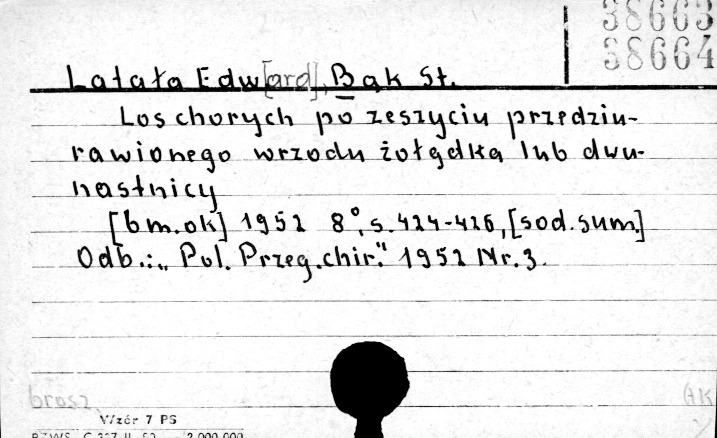 38663
38664
Latała Edw[ard], Bąk St.
Los chorych po zeszyciu przedziu-
rawionego wrzodu żołądka lub dwu-
nastnicy
[bm.ok] 1952 8°, s. 424-426, [sod.sum.]
Odb.: „Pol. Przeg. chir." 1952 Nr. 3.
brosz.
AK
Wzór 7 PS